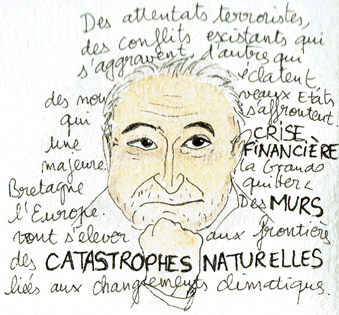 Des attentats terroristes,
des conflits existants qui
s'aggravent, d'autres qui
éclatent,
des nouveaux Etats
qui s'affrontent.
une CRISE
majeure, FINANCIÈRE
la Grande
Bretagne quitter
l'Europe. Des MURS
vont s'elever aux frontière
des CATASTROPHES NATURELLES
liés aux changements climatiques.